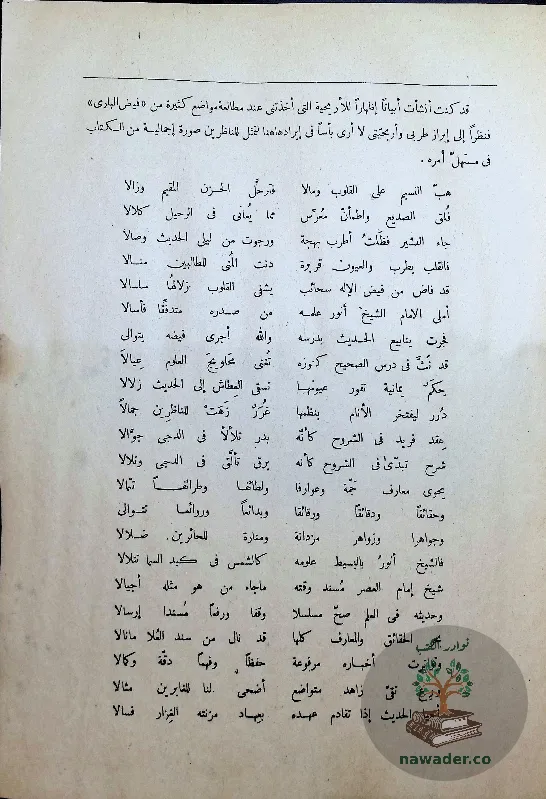 قد كنت أنشأت أبياتاً إظهاراً للأريحية التى أخذتنى عند مطالعة مواضع كثيرة من «فيض البارى»
فنظراً إلى إبراز طربى وأريحيتى لا أرى بأساً فى إيرادها هنا لتمثل للناظرين صورة إجمالية من الكتاب
فى مستهل أمره .
هبّ النسيم على القلوب ومالا فترحّل الحزن المقيم وزالا
فلق الصديع واطمأنّ معرّس مما يُعانى فى الرحيل كلالا
جاء البشير فظلْتُ أطرب بهجة ورجوت من ليلى الحديث وصالا
فالقلب يطرب والعيون قريرة دنت المُنى للطالبين منالا
قد فاض من فيض الإله سحائب يشفى القلوب زلالها سلسالا
أملى الامام الشيخ أنور علمه من صدره متدفقًا فأسالا
فجرت ينابيع الحديث بدرسه والله أجرى فيضه يتوالى
قد نُثَّ فى درس الصحيح كنوزه تُغنى محاويجَ العلوم عيالاً
حِكَمٌ يمانية تفور عيونها تسقى العِطاش إلى الحديث زلالا
دُرر ليفتخر الأنام بنظمها غُرَرٌ زَهَتْ للناظرين جمالاً
عِقد فريد فى الشروح كأنّه بدر تلألأ فى الدجى جوّالا
شرح تبدّى فى الشروح كأنه برق تألّق فى الدجى وتلالا
يحوى معارف جمّة وعوارفا ولطائفا وطرائفا تتالا
وحقائقاً ودقائقاً ورقائقا وبدائعاً وروائعا تتوالى
وجواهرا وزواهر مزدانة ومنارة للحائرين ضلالا
فالشيخ أنورُ بالبسيط علومه كالشمس فى كبد السما تتلالا
شيخ إمام العصر مُسند وقته ماجاء من هو مثله أجيالا
وحديثه فى العلم صحّ مسلسلا وقفا ورفعاً مُسندا إرسالا
الحقائق والمعارف كلها قد نال من سند العُلا مانالا
أخباره مرفوعة حفظاً وفهماً دقّة وكمالا
ورع تقىّ زاهد متواضع أضحى لنا للغابرين مثالا
الحديث إذا تقادم عهده بعهاد مزنته الغِزار فسالا
نوادر الكتب
nawader.co